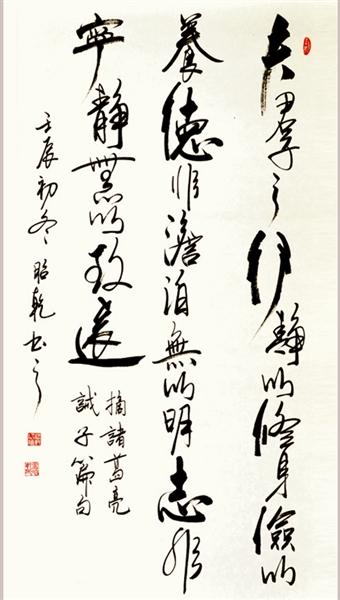 夫君子之行靜以修身儉以
養德非澹泊無以明志非
寧靜無以致遠
摘諸葛亮
誡子篇句
壬辰初冬昭乾書之